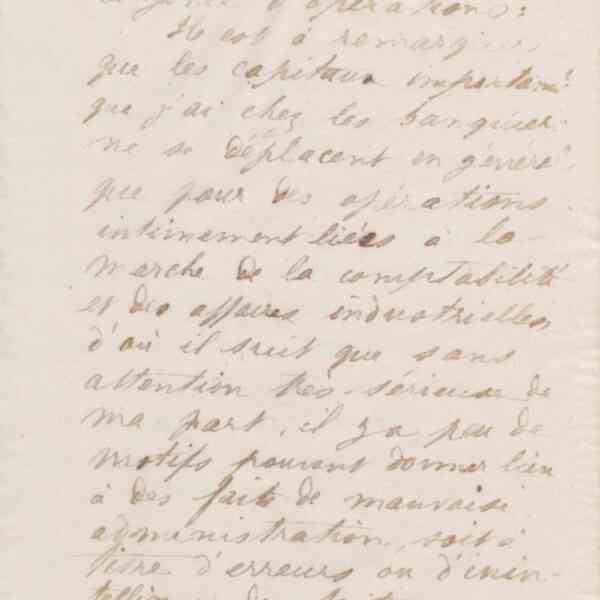 d'opérations:
Il est à remarquer
que les capitaux importants
que j'ai chez les banquiers
ne se déplacent en général
que pour des opérations
intimement liées à la
marche de la comptabilité
et des affaires industrielles
d'où il suit que sans
attention très-sérieuse de
ma part, il y a peu de
motifs pouvant donner lieu
à des faits de mauvaise
administration, soit à
titre d'erreurs ou d'inin-